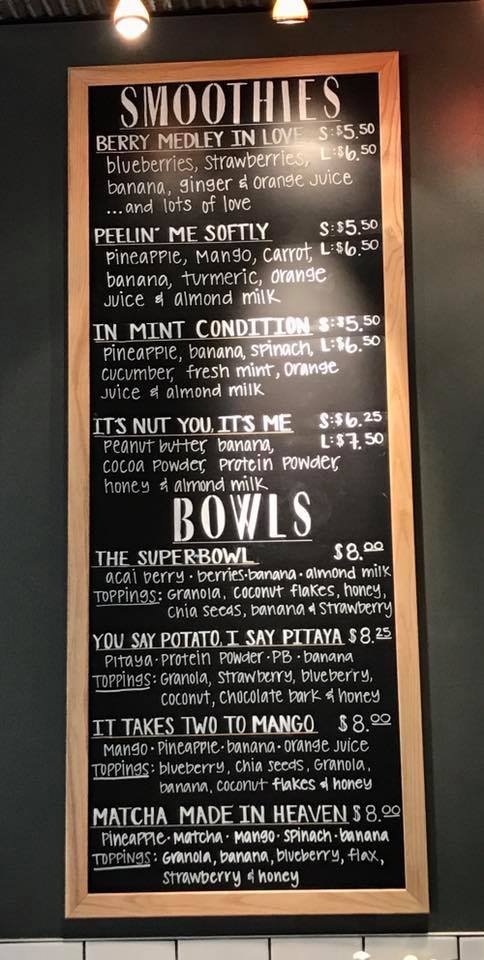 SMOOTHIES
BERRY MEDLEY IN LOVE S:$5.50
blueberries, Strawberries, L:$6.50
banana, ginger & orange juice
...and lots of love
PEELIN' ME SOFTLY S:$5.50
Pineapple, Mango, Carrot, L:$6.50
banana, turmeric, orange
juice & almond milk
IN MINT CONDITION S:$5.50
Pineapple, banana, spinach, L:$6.50
cucumber, fresh mint, orange
juice & almond milk
IT'S NUT YOU, IT'S ME S:$6.25
Peanut butter, banana, L:$7.50
cocoa powder, protein powder,
honey & almond milk
BOWLS
THE SUPERBOWL $8.00
acai berry · berries·banana · almond milk
TOPPINGS: Granola, coconut flakes, honey,
chia seeds, banana & strawberry
YOU SAY POTATO, I SAY PITAYA $8.25
Pitaya · Protein Powder · PB · banana
TOPPINGS: Granola, Strawberry, blueberry,
coconut, chocolate bark & honey
IT TAKES TWO TO MANGO $8.00
Mango · Pineapple · banana · orange juice
TOPPINGS: blueberry, Chia seeds, Granola,
banana, coconut flakes & honey
MATCHA MADE IN HEAVEN $8.00
Pineapple · Matcha · Mango · Spinach · banana
TOPPINGS: Granola, banana, blueberry, flax,
strawberry & honey